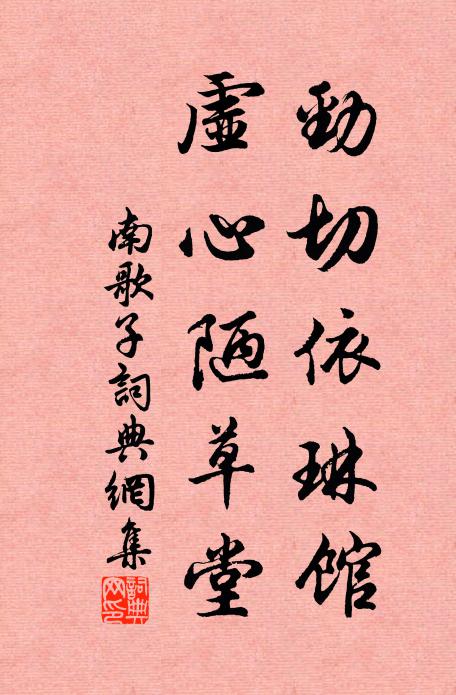 勁切依琳館
虛心陋草堂
南歌子詞典網集
詞典網印